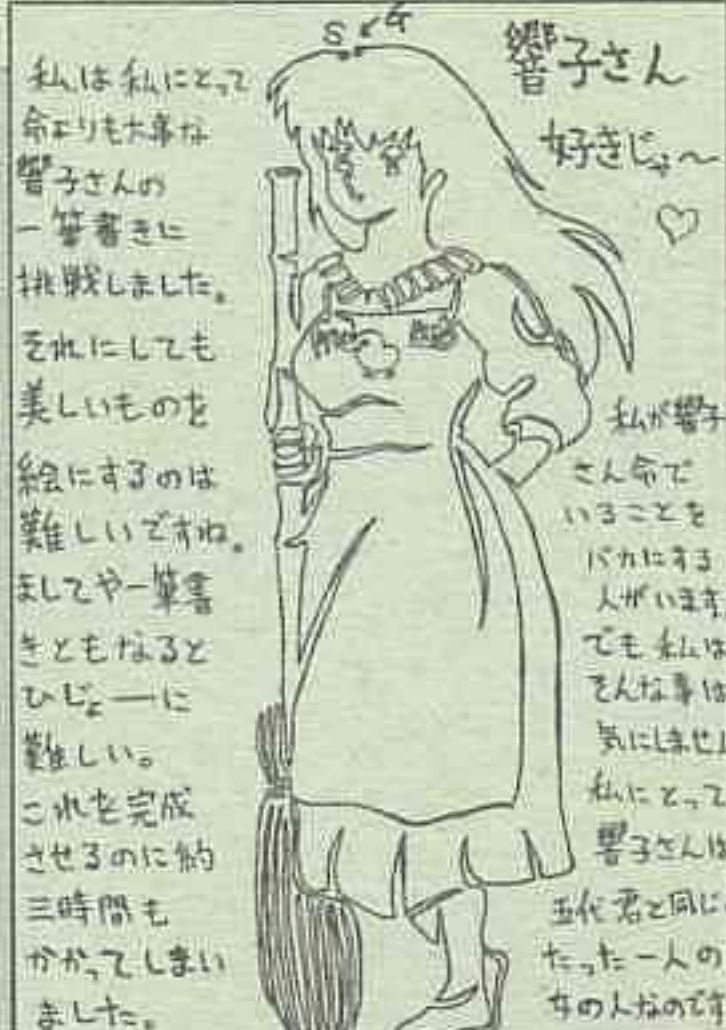 S G
響子さん
好きじゃ〜
私は私にとって
命よりも大事な
響子さんの
一筆書きに
挑戦しました。
それにしても
美しいものを
絵にするのは
難しいですね。
ましてや一筆書
きともなると
ひじょーに
難しい。
これを完成
させるのに約
三時間も
かかってしまい
ました。
私が響子
さん命で
いることを
バカにする
人がいます。
でも私は
そんな事は
気にしませ
私にとって
響子さんは
五代君と同じ
たった一人の
女の人なのです